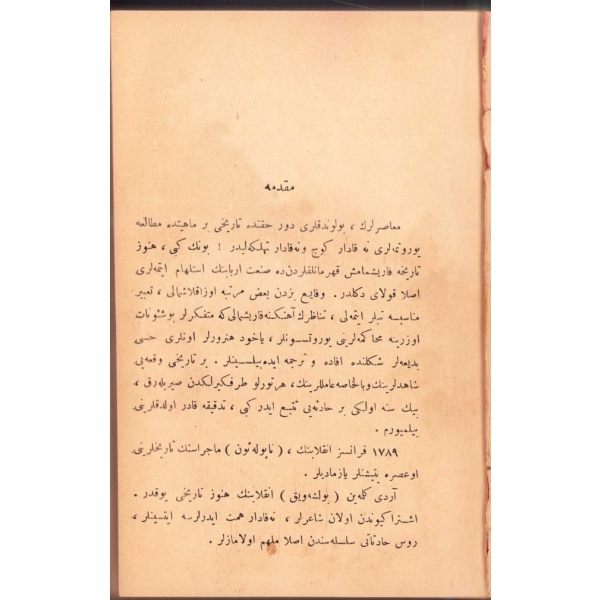 مقدمه
معاصرلرك ، بولوندقلرى دور حقنده تاريخى بر ماهيتده مطالعه
يوروتمه‌لرى نه قادار كوج ونه‌قادار تهلكه‌ليدر ! بونك كبى ، هنوز
تاريخه قاريشمامش قهرمانلقلردن‌ده صنعت اربابنك استلهام ايتمه‌لرى
اصلا قولاى دكلدر . وقايع بزدن بعض مرتبه اوزاقلاشمالى ، تعبير
مناسبسه تبلر ايتمه‌لى ، تناظرك آهنكنه قاريشمالى كه متفكرلر بوشئونات
اوزرينه محاكمه‌لرينى يوروتسونلر ، ياخود هنرورلر اونلرى حسى
بديعه‌لر شكلنده افاده و ترجمه ايده‌بيلسينلر . بر تاريخى وقعه‌يى
شاهدلرينك وبالخاصه عامللرينك ، هرتورلو طرفكيرلكدن صيريله‌رق ،
بيك سنه اولكى بر حادثه‌يى تتبع ايدر كبى ، تدقيقه قادر اولدقلرينى
بيلميورم .
١٧٨٩ فرانسز انقلابنك ، ( ناپوله‌ئون ) ماجراسنك تاريخلرينى
اوعصره يتيشنلر يازماديلر .
آردى كلمه‌ين ( بولشه‌ويق ) انقلابنك هنوز تاريخى يوقدر .
اشتراكيوندن اولان شاعرلر ، نه‌قادار همت ايدرلرسه ايتسينلر ،
روس حادثاتى سلسله‌سندن اصلا ملهم اولامازلر .